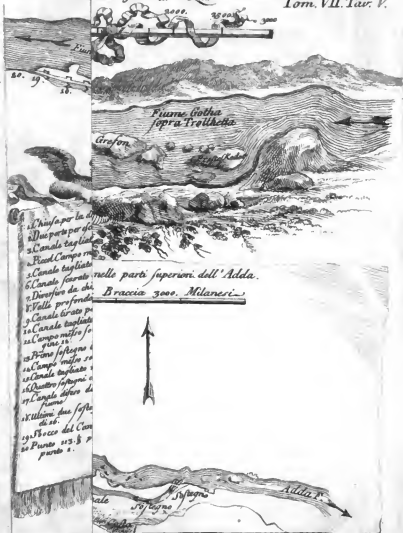 Tom. VII. Tav. V.
2000. 2500. 3000
Fium
20. 19. 18.
Fiume Gotha
sopra Trollhetta
Grefon
1. Chiusa per la d
2. Due porte per esc
3. Canale taglia
4. Piccol Campo
5. Canale tagliat
6. Canale scavato
7. Diversivo da chi
8. Valle profonda
9. Canale tirato pe
10. Canale tagliat
11. Campo misto so
12. Primo sostegno
14. Campo misto so
15. Canale tagliato
16. Quattro sostegni
17. Canale difeso da
fiume
18. Ultimi due soste
di 16.
19. Sbocco del Can
20. Punto 113.
punto 1.
nelle parti superiori dell'Adda.
Braccia 3000. Milanesi
Sostegno
nale
Sostegno
Adda F.